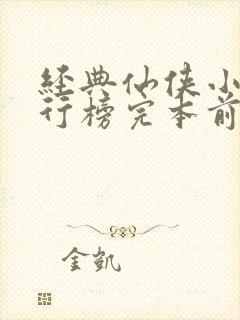 经典仙侠小
行榜完本前
金凯